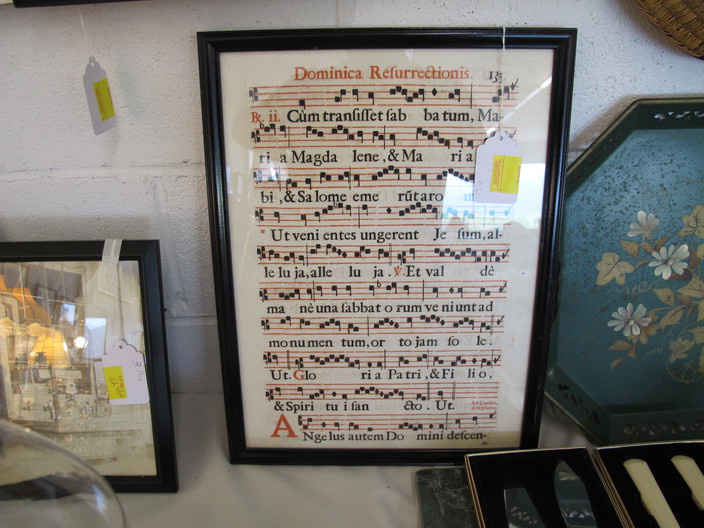 Dominica Reſurrectionis. 135
℟. ii. Cùm tranſiſſet ſab ba tum, Ma-
ri a Magda lene, & Ma ri a
bi, & Sa lome eme rũt aro
* Ut veni entes ungerent Je ſum, al-
le lu ja, alle lu ja. ℣. Et val dè
ma nè una ſabbat o rum ve ni unt ad
mo nu men tum, or to jam ſo le.
Ut. Glo ri a Pa tri, & Fi li o,
& Spiri tu i ſan cto. Ut.
Ad Laudes,
Antiphona.
A Nge lus autem Do mini deſcen-